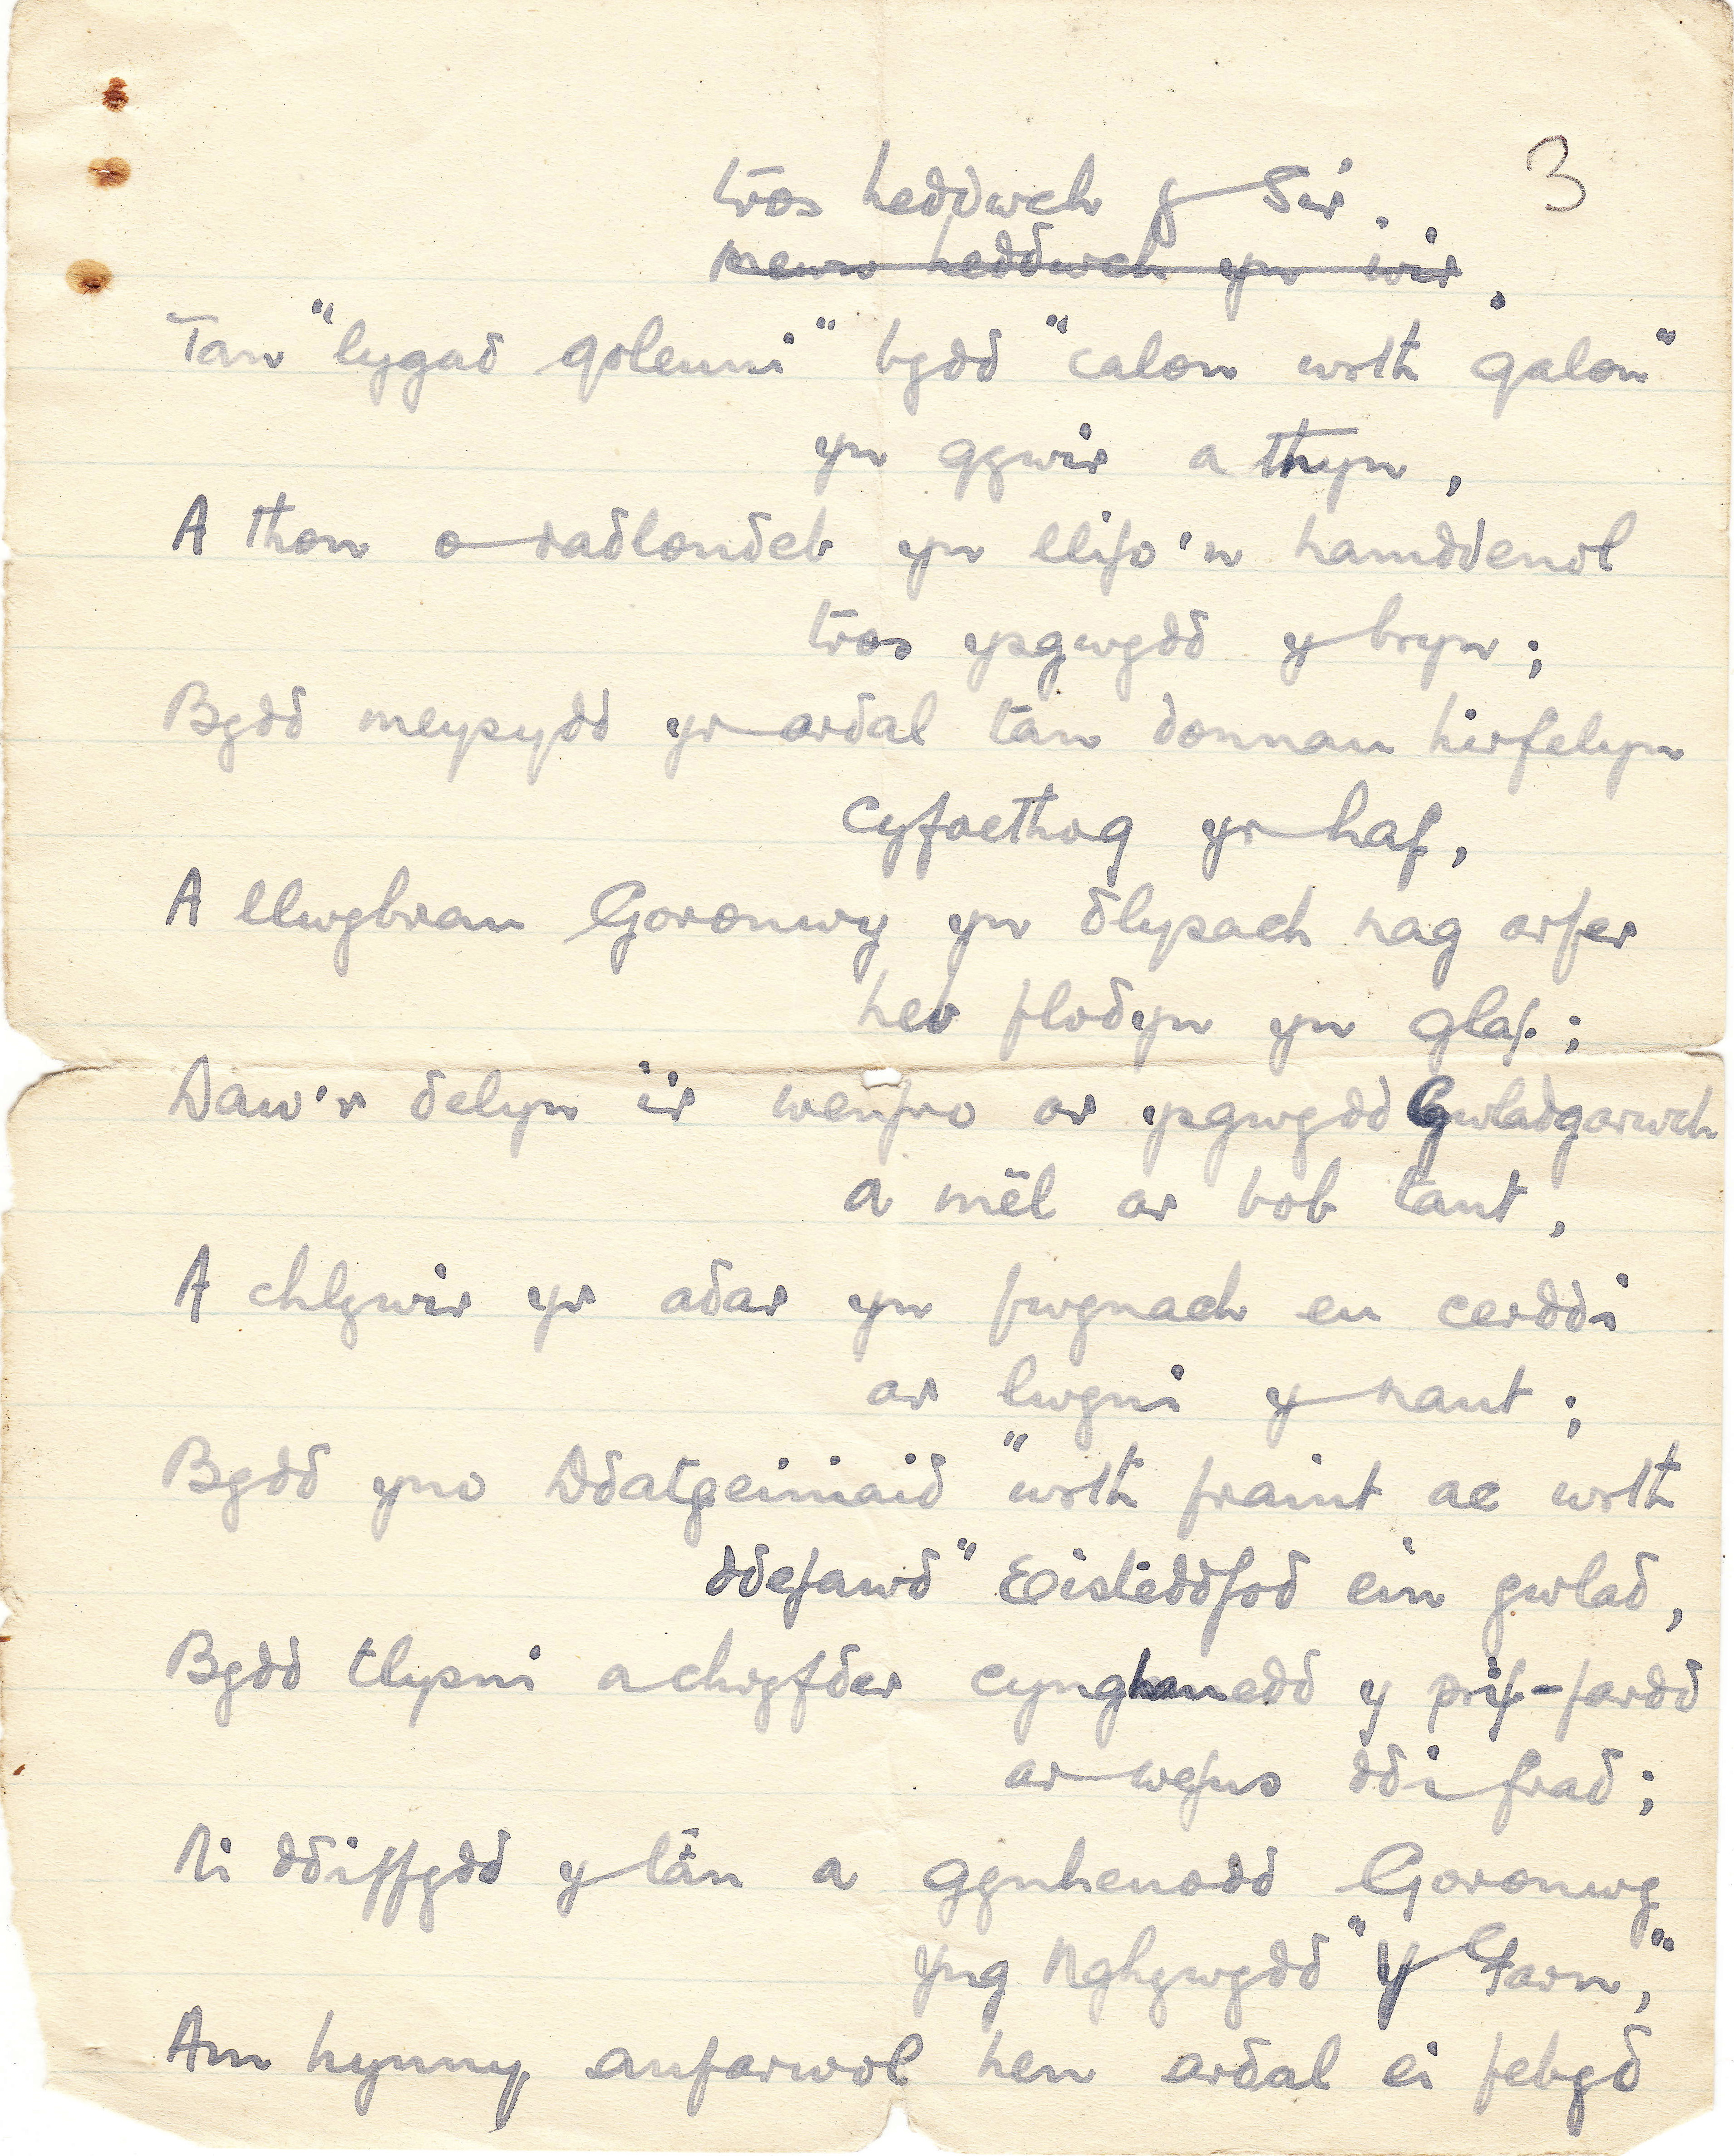 3
tros heddwch y Sir.
mewn heddwch yn wir.
Tan "lygad goleuni" bydd "calon wrth galon"
yn gywir a thyn,
A thon o radlondeb yn llifo'n hamddenol
tros ysgwydd y bryn;
Bydd meysydd yr ardal tan donnau hirfelyn
cyfoethog yr haf,
A llwybrau Goronwy yn dlysach nag arfer
heb flodyn yn glaf;
Daw'r delyn i'r wenfro ar ysgwydd Gwladgarwch
a mêl ar bob tant,
A chlywir yr adar yn fwynach eu cerddi
ar lwyni y nant;
Bydd yno Ddatgeiniaid "wrth fraint ac wrth
ddefawd" Eisteddfod ein gwlad,
Bydd tlysni a chryfder cynghanedd y prif-fardd
ar wefus ddi frad;
Ni ddiffydd y tân a gynheuodd Goronwy
Yng Nghywydd "Y Farn,"
Am hynny, anfarwol hen ardal ei febyd